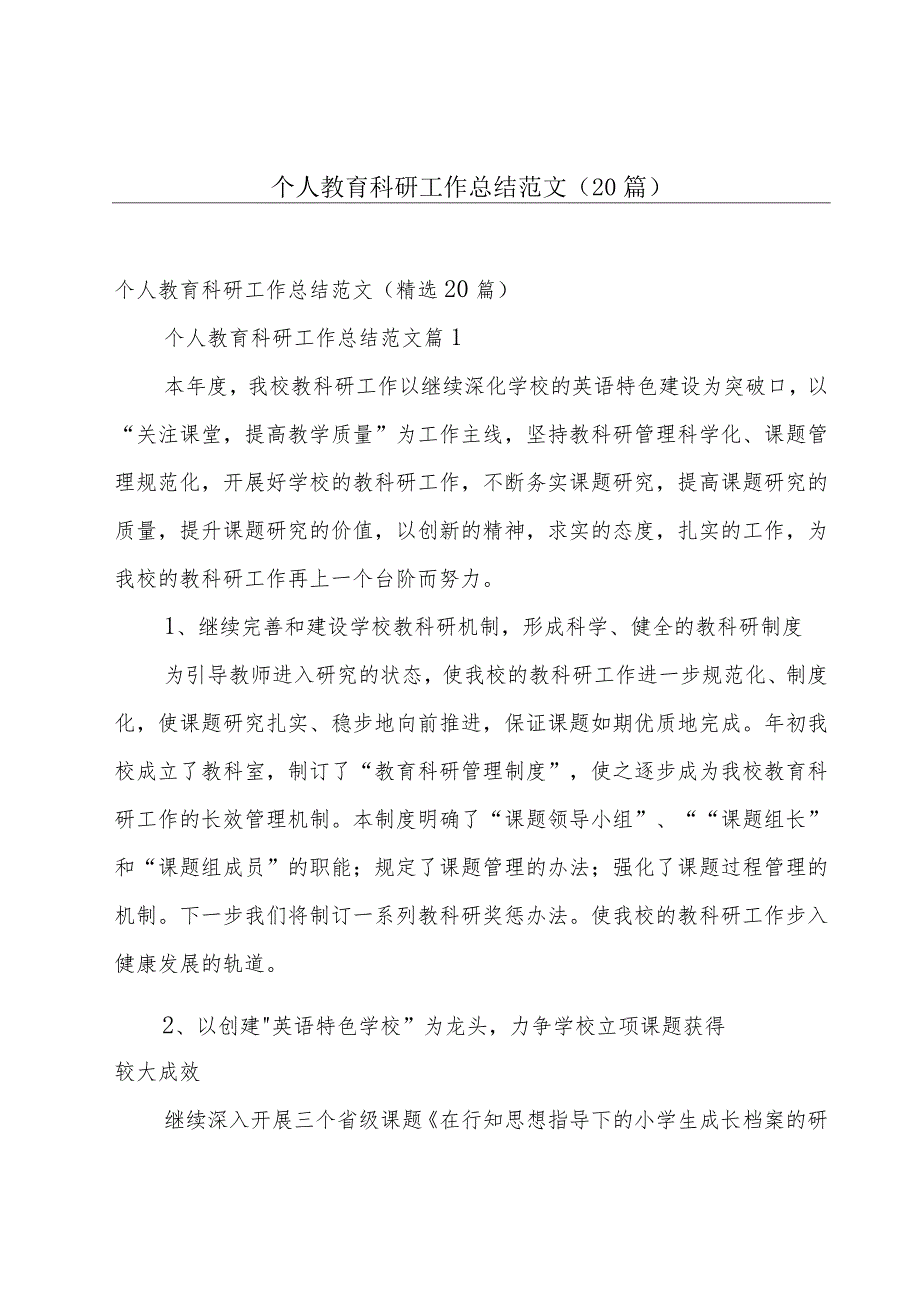 个人教育科研工作总结范文（20篇）
个人教育科研工作总结范文（精选20篇）
个人教育科研工作总结范文篇1
本年度，我校教科研工作以继续深化学校的英语特色建设为突破口，以
“关注课堂，提高教学质量”为工作主线，坚持教科研管理科学化、课题管
理规范化，开展好学校的教科研工作，不断务实课题研究，提高课题研究的
质量，提升课题研究的价值，以创新的精神，求实的态度，扎实的工作，为
我校的教科研工作再上一个台阶而努力。
1、继续完善和建设学校教科研机制，形成科学、健全的教科研制度
为引导教师进入研究的状态，使我校的教科研工作进一步规范化、制度
化，使课题研究扎实、稳步地向前推进，保证课题如期优质地完成。年初我
校成立了教科室，制订了“教育科研管理制度”，使之逐步成为我校教育科
研工作的长效管理机制。本制度明确了“课题领导小组”、““课题组长”
和“课题组成员”的职能；规定了课题管理的办法；强化了课题过程管理的
机制。下一步我们将制订一系列教科研奖惩办法。使我校的教科研工作步入
健康发展的轨道。
2、以创建"英语特色学校”为龙头，力争学校立项课题获得
较大成效
继续深入开展三个省级课题《在行知思想指导下的小学生成长档案的研